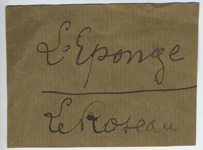 L'Eponge
Le Roseau